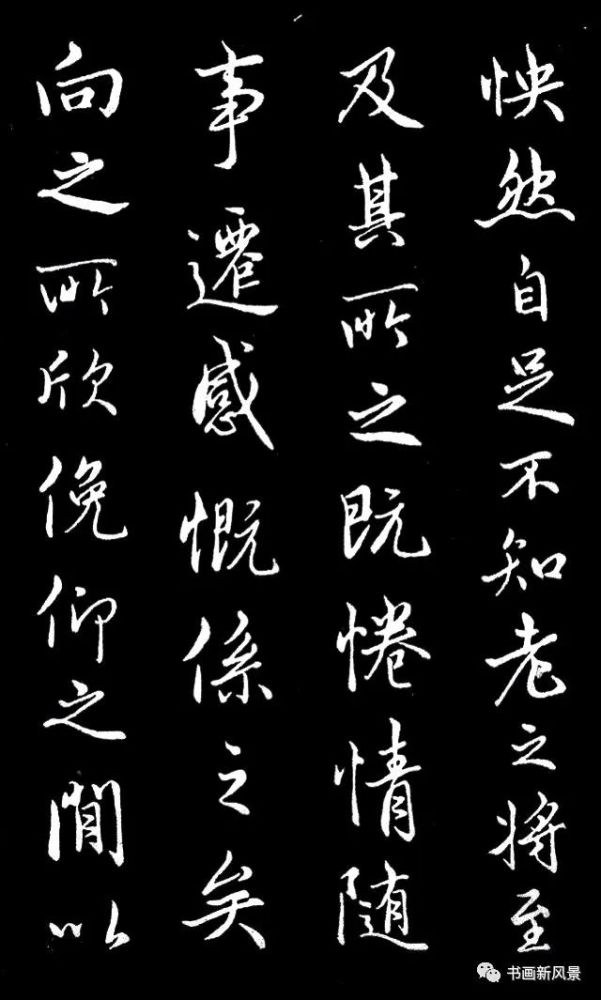 怏然自足不知老之将至
及其所之既惓情随
事遷感慨係之矣
向之所欣俛仰之間以
书画新风景